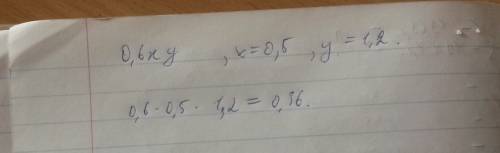 0,6xy , x=0,5 , y=1,2.
0,6·0,5·1,2=0,36.